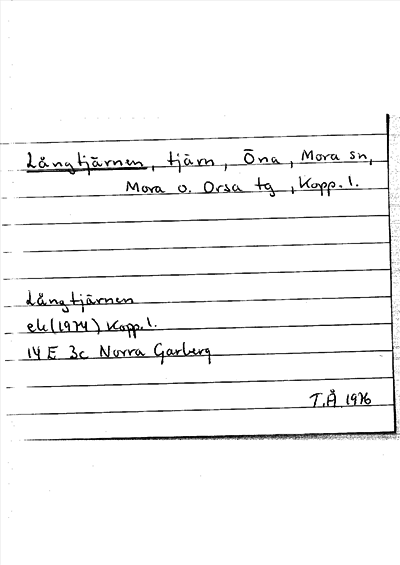 Långtjärnen, tjärn, Öna, Mora sn,
Mora o. Orsa tg, Kopp. l.
Långtjärnen
ek (1974) Kopp. l.
14 E 3c Norra Garberg
T.Å 1976